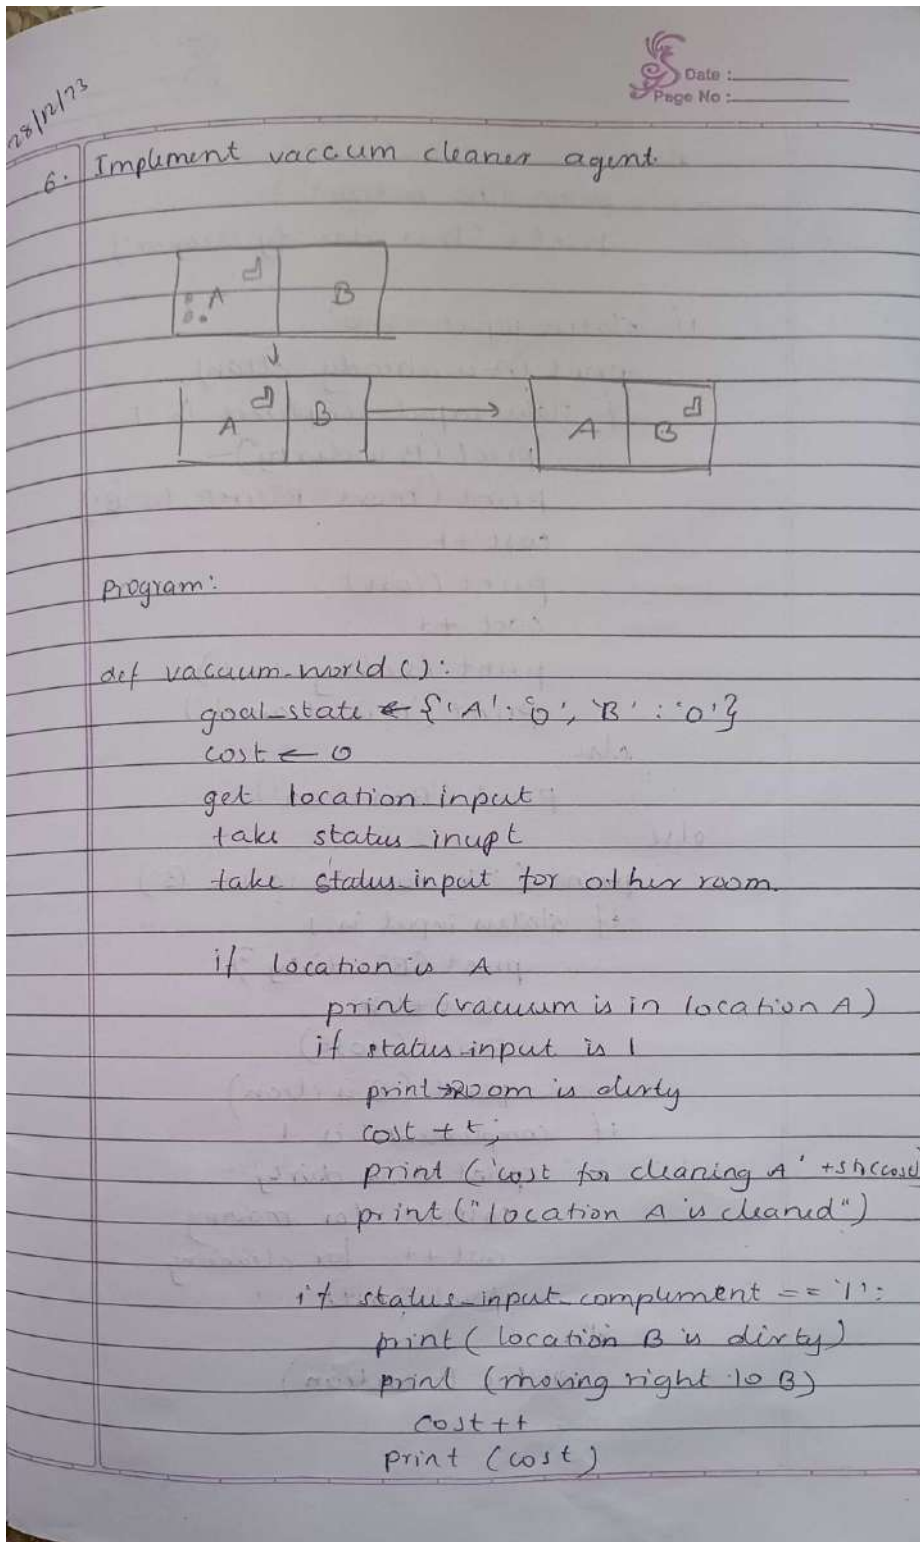 Date :
Page No :
28/12/23
6. Implement vaccum cleaner agent.
A B
A B A B
Program:
def vacuum-world ():
goal_state ← {'A': '0', 'B' : '0'}
cost ← 0
get location input
take status inupt
take status_input for other room.
if location is A
print (vacuum is in location A)
if status input is 1
print → Room is dirty
cost ++;
print ('cost for cleaning A' + str(cost)
print ("location A is cleaned")
if status_input_complement == '1':
print ( location B is dirty)
print (moving right to B)
cost++
print (cost)